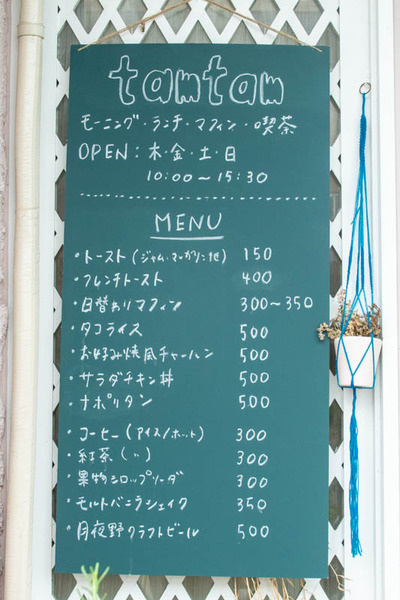 tamtam
モーニング・ランチ・マフィン・喫茶
OPEN：木・金・土・日
10:00～15:30
MENU
・トースト（ジャム・マーガリン他） 150
・フレンチトースト 400
・日替わりマフィン 300～350
・タコライス 500
・お好み焼風チャーハン 500
・サラダチキン丼 500
・ナポリタン 500
・コーヒー（アイス/ホット） 300
・紅茶（〃） 300
・果物シロップソーダ 300
・モルトバニラシェイク 350
・月夜野クラフトビール 500